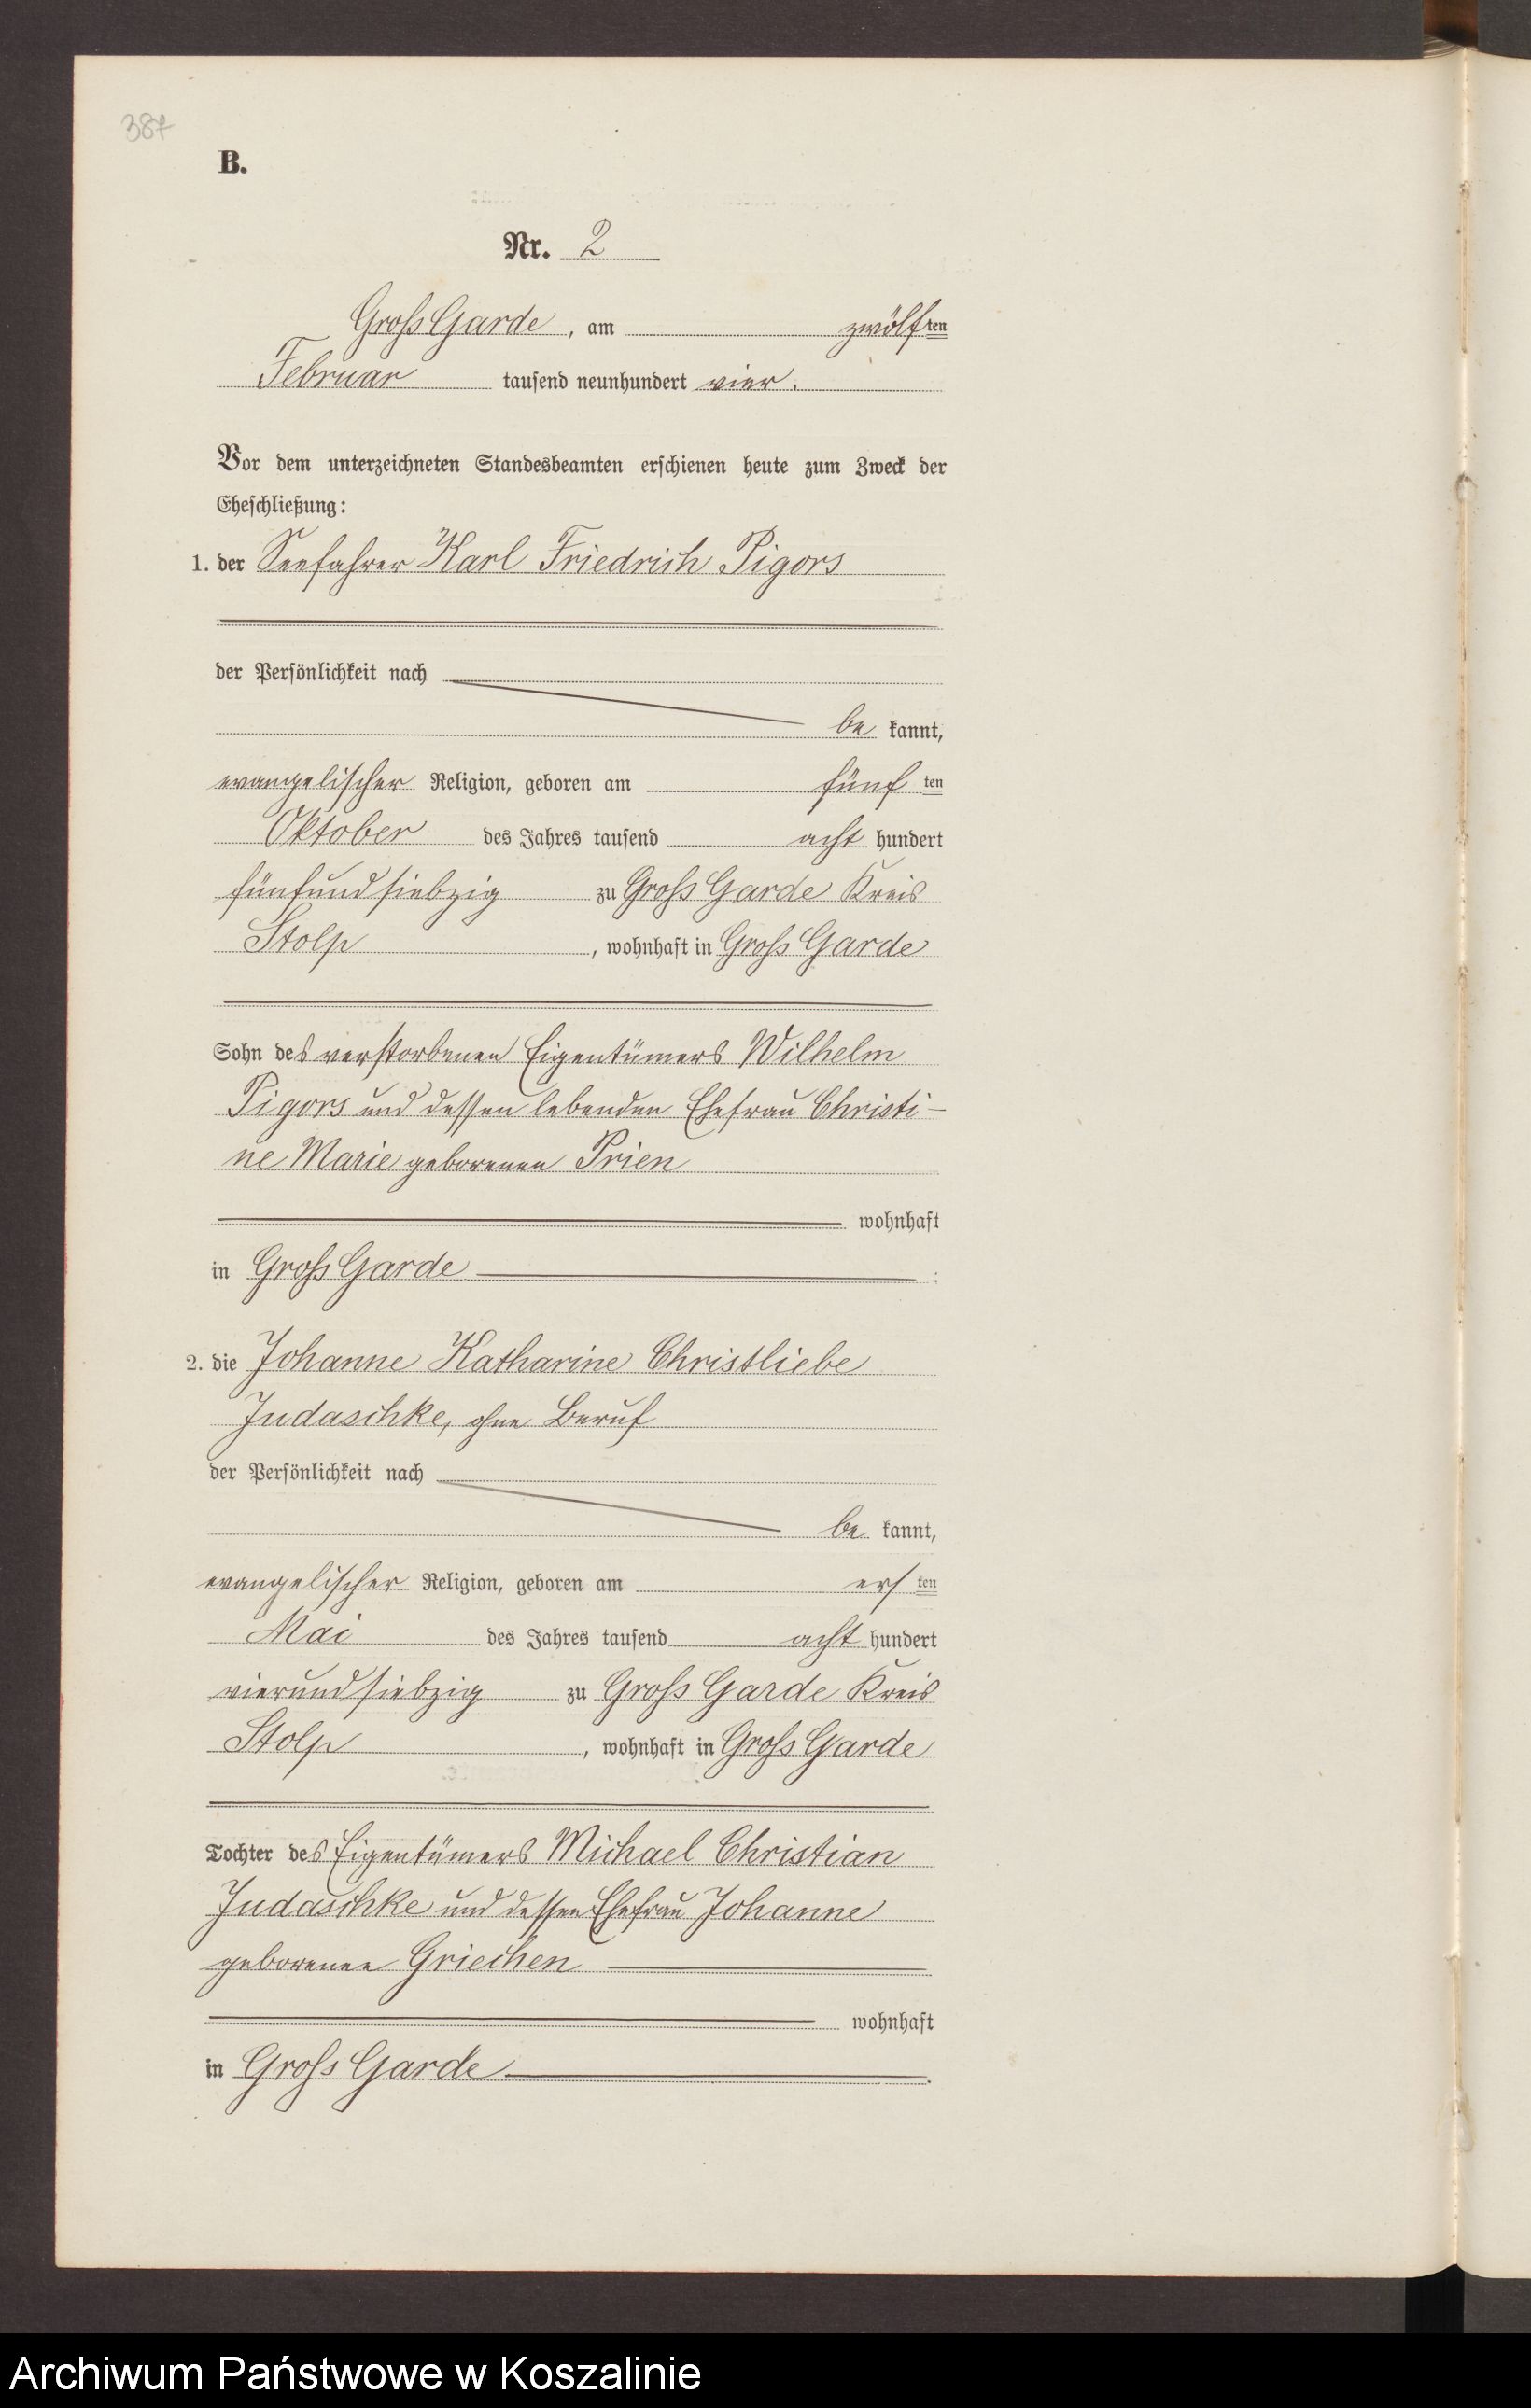 387
B.
Nr. 2
Groß Garde, am zwölften
Februar tausend neunhundert vier.
Vor dem unterzeichneten Standesbeamten erschienen heute zum Zweck der
Eheschließung:
1. der Seefahrer Karl Friedrich Pigors
der Persönlichkeit nach
be kannt,
evangelischer Religion, geboren am fünf ten
Oktober des Jahres tausend acht hundert
fünfundsiebzig zu Groß Garde Kreis
Stolp, wohnhaft in Groß Garde
Sohn des verstorbenen Eigentümers Wilhelm
Pigors und dessen lebenden Ehefrau Christi-
ne Marie geborenen Prien
wohnhaft
in Groß Garde :
2. die Johanne Katharine Christliebe
Judaschke, ohne Beruf
der Persönlichkeit nach
be kannt,
evangelischer Religion, geboren am ers ten
Mai des Jahres tausend acht hundert
vierundsiebzig zu Groß Garde Kreis
Stolp, wohnhaft in Groß Garde
Tochter des Eigentümers Michael Christian
Judaschke und dessen Ehefrau Johanne
geborenen Griechen
wohnhaft
in Groß Garde.
Archiwum Państwowe w Koszalinie